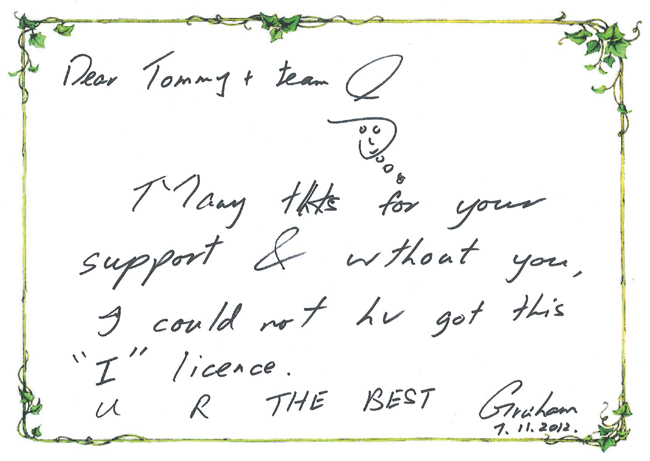 Dear Tommy + team
Many thks for your
support & without you,
I could not hv got this
"I" licence.
U R THE BEST Graham
7.11.2012.